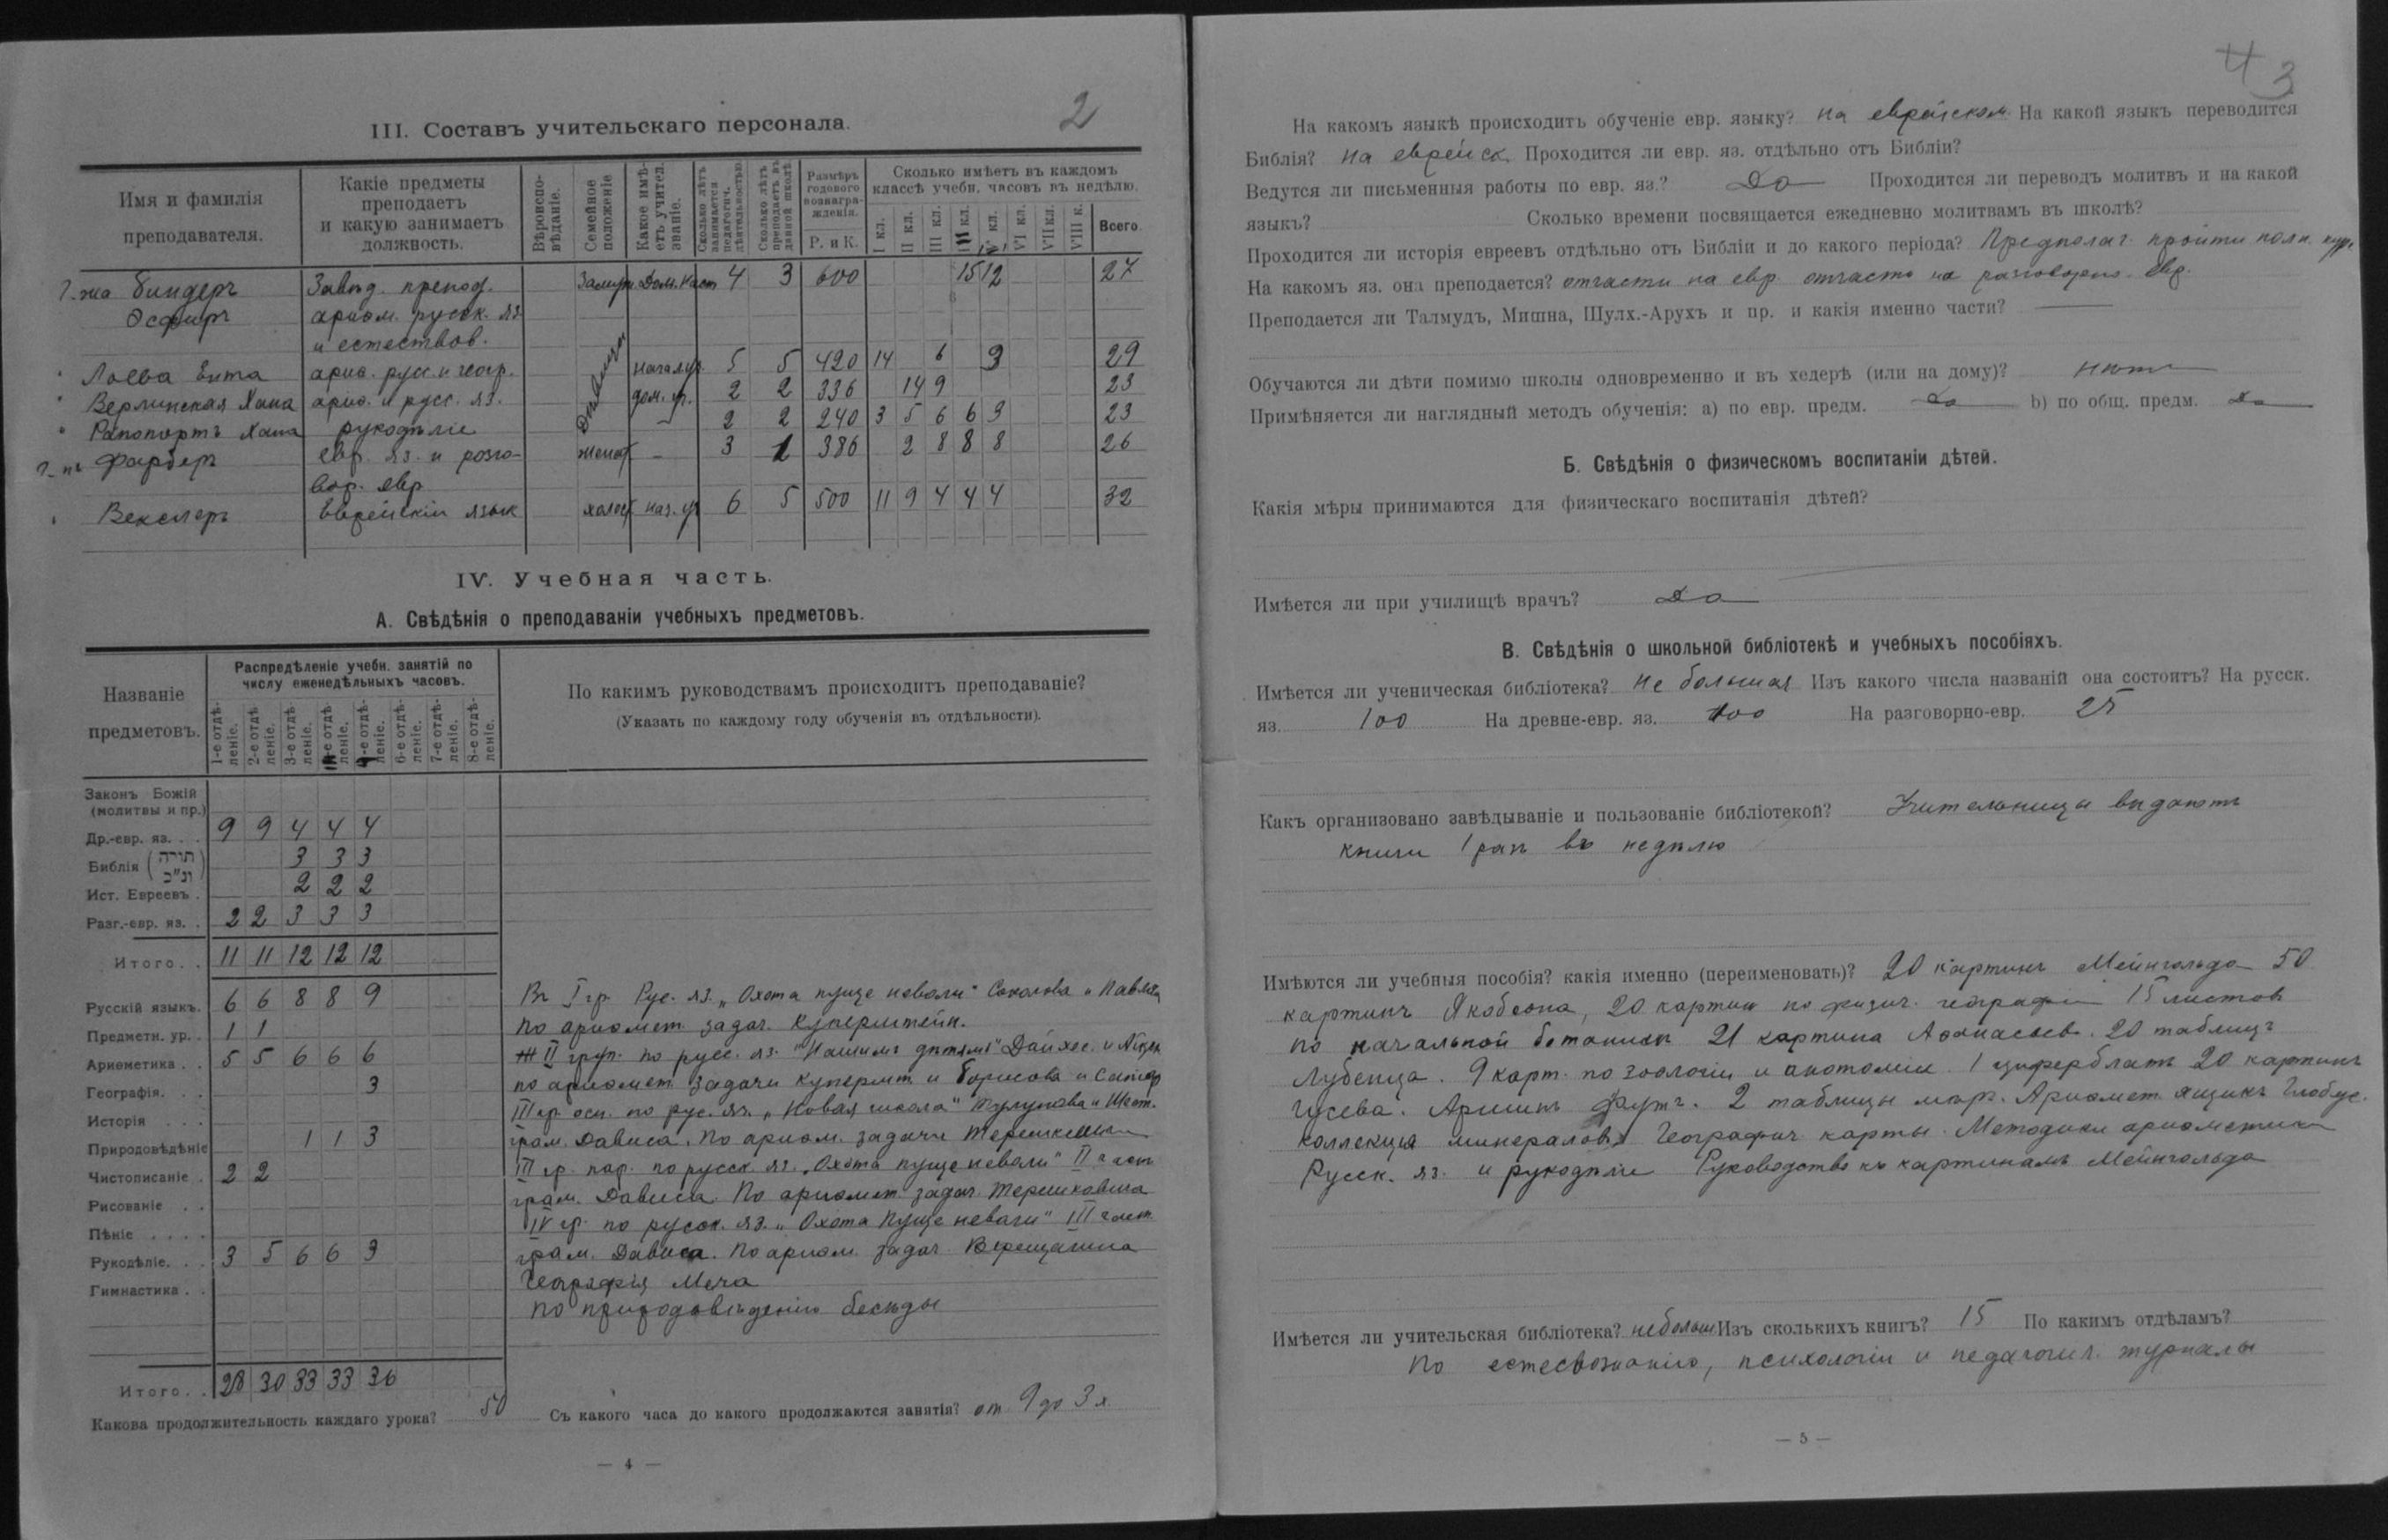 2
III. Составъ учительскаго персонала.
Имя и фамилія преподавателя.
Какіе предметы преподаетъ и какую занимаетъ должность.
Вѣроиспо-вѣданіе.
Семейное положеніе
Какое имѣ-етъ учител. званіе.
Сколько лѣтъ занимается педагогич. дѣятельностью.
Сколько лѣтъ преподаетъ въ данной школѣ.
Размѣръ годового вознагра-жденія.
Р. и К.
Сколько имѣетъ въ каждомъ классѣ учебн. часовъ въ недѣлю.
I кл. II кл. III кл. кл. кл. VI кл. VII кл. VIII к. Всего
Г-жа Биндеръ Завѣд. препод. Замуж. Дом. наст 4 3 600 15 12 27
Эсфирь ариѳм. русск. яз.
и естествов.
" Лоева Ента ариѳ. русс. и геогр. Дѣвицы нач. уч. 5 5 420 14 6 9 29
" Верлинская Хана ариѳ. и русс. яз. дом. уч. 2 2 336 14 9 23
" Рапопортъ Хана рукодѣліе — 2 2 240 3 5 6 6 3 23
Г-нъ Фарберъ евр. яз. и разго- женат — 3 1 386 2 8 8 8 26
вор. евр.
" Векслеръ еврейскій языкъ холост нач. уч 6 5 500 11 9 4 4 4 32
IV. Учебная часть.
А. Свѣдѣнія о преподаваніи учебныхъ предметовъ.
Названіе предметовъ.
Распредѣленіе учебн. занятій по числу еженедѣльныхъ часовъ.
1-е отдѣ-леніе. 2-е отдѣ-леніе. 3-е отдѣ-леніе. -е отдѣ-леніе. -е отдѣ-леніе. 6-е отдѣ-леніе. 7-е отдѣ-леніе. 8-е отдѣ-леніе.
По какимъ руководствамъ происходитъ преподаваніе?
(Указать по каждому году обученія въ отдѣльности).
Законъ Божій
(молитвы и пр.)
Др.-евр. яз. . . 9 9 4 4 4
Библія (תורה ונ"כ) 3 3 3
Ист. Евреевъ . 2 2 2
Разг.-евр. яз. . 2 2 3 3 3
Итого. . 11 11 12 12 12
Русскій языкъ. 6 6 8 8 9
Предметн. ур. . 1 1
Ариѳметика . . 5 5 6 6 6
Географія. . . 3
Исторія . . .
Природовѣдѣніе 1 1 3
Чистописаніе . 2 2
Рисованіе . .
Пѣніе . . . .
Рукодѣліе. . . 3 5 6 6 3
Гимнастика . .
Итого. . 28 30 33 33 36
Въ I гр. Рус. яз. „Охота пуще неволи" Соколова и Павлова
по ариѳмет задач. Куперштейн.
II груп. по русс. яз. "Нашимъ дѣтямъ" Дайхес. и
по ариѳмет задачи Купершт и Борисова и Сатар
III гр. осн. по рус. яз. „Новая школа" Тулупова и Шест.
грам. Дависа. По ариѳм. задачи Терешкевич
III гр. пар. по русск яз. „Охота пуще неволи" II част
грам. Дависа. По ариѳмет. задач. Терешкевича
IV гр. по русск. яз. „Охота пуще неволи" III част.
грам. Дависа. По ариѳм задач Верещагина
Географія Меча
По природовѣдѣнію бесѣды
Какова продолжительность каждаго урока? 50 Съ какого часа до какого продолжаются занятія? от 9 до 3 х
— 4 —
4 3
На какомъ языкѣ происходитъ обученіе евр. языку? на еврейском На какой языкъ переводится
Библія? на еврейск. Проходится ли евр. яз. отдѣльно отъ Библіи?
Ведутся ли письменныя работы по евр. яз.? Да Проходится ли переводъ молитвъ и на какой
языкъ? Сколько времени посвящается ежедневно молитвамъ въ школѣ?
Проходится ли исторія евреевъ отдѣльно отъ Библіи и до какого періода? Предполаг. пройти полн. курс
На какомъ яз. она преподается? отчасти на евр. отчасти на разговорно-евр.
Преподается ли Талмудъ, Мишна, Шулх.-Арухъ и пр. и какія именно части? —
Обучаются ли дѣти помимо школы одновременно и въ хедерѣ (или на дому)? нѣтъ
Примѣняется ли наглядный методъ обученія: а) по евр. предм. да b) по общ. предм. да
Б. Свѣдѣнія о физическомъ воспитаніи дѣтей.
Какія мѣры принимаются для физическаго воспитанія дѣтей?
Имѣется ли при училищѣ врачъ? да
В. Свѣдѣнія о школьной библіотекѣ и учебныхъ пособіяхъ.
Имѣется ли ученическая библіотека? не большая Изъ какого числа названій она состоитъ? На русск.
яз. 100 На древне-евр. яз. 100 На разговорно-евр. 25
Какъ организовано завѣдываніе и пользованіе библіотекой? Учительницы выдаютъ
книги 1 разъ въ недѣлю
Имѣются ли учебныя пособія? какія именно (переименовать)? 20 картинъ Мейнгольда 50
картинъ Якобсона, 20 картин по физич. географіи 15 листовъ
по начальной ботаники 21 картина Аѳанасьев. 20 таблицъ
Лубенца. 9 карт. по зоологіи и анотоміи. 1 циферблатъ 20 картинъ
Гусева. Аршинъ Футъ. 2 таблицы мѣр. Ариѳмет ящикъ Глобус.
коллекція минераловъ Географич. карты. Методики ариѳметики
Русск. яз. и рукодѣлія Руководство къ картинамъ Мейнгольда
Имѣется ли учительская библіотека? небольш Изъ сколькихъ книгъ? 15 По какимъ отдѣламъ?
По естесвознанію, психологіи и педагогич. журналы
— 5 —